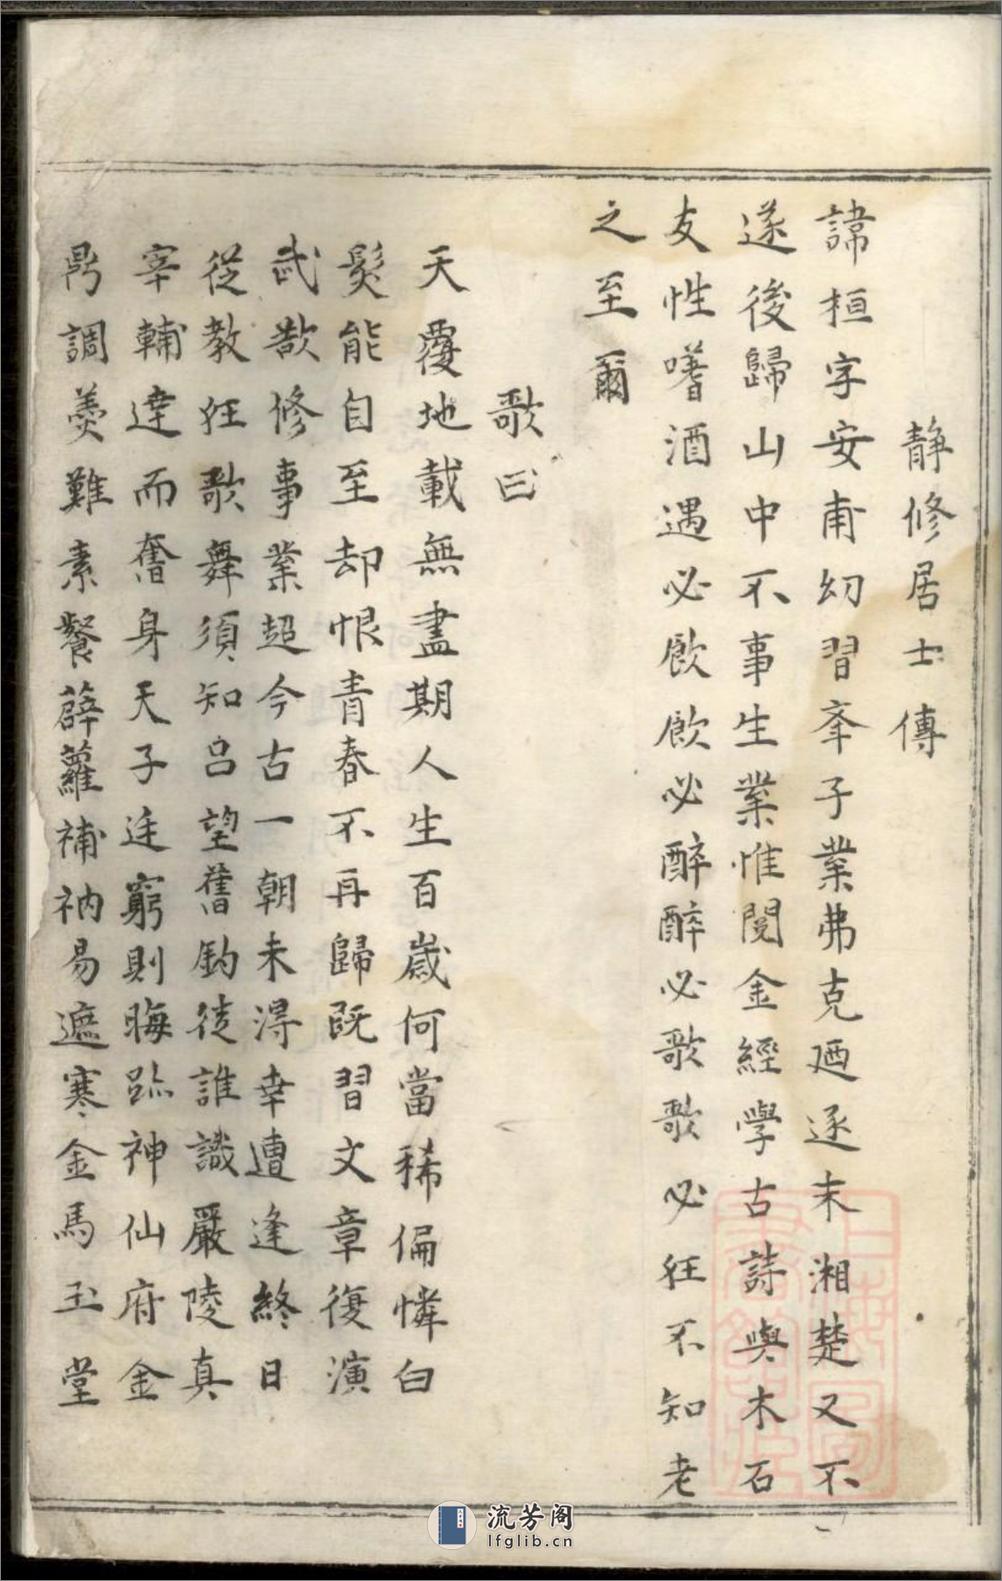 静修居士傳
諱桓字安甫幻習峯子業弗克廼逐末湘楚又不
遂後歸山中不事生業惟閱金經學古詩與木石
友性嗜酒遇必飲飲必醉醉必歌歌必狂不知老
之至爾
歌曰
天覆地載無盡期人生百歲何當稀偏憐白
髮能自至却恨青春不再歸既習文章復演
武欲修事業超今古一朝未得幸遭逢終日
從教狂歌舞須知呂望舊釣徒誰識嚴陵真
宰輔達而奮身天子廷窮則晦跡神仙府金
鼎調羮難素餐薜蘿補衲易遮寒金馬玉堂
流芳阁
lfglib.cn